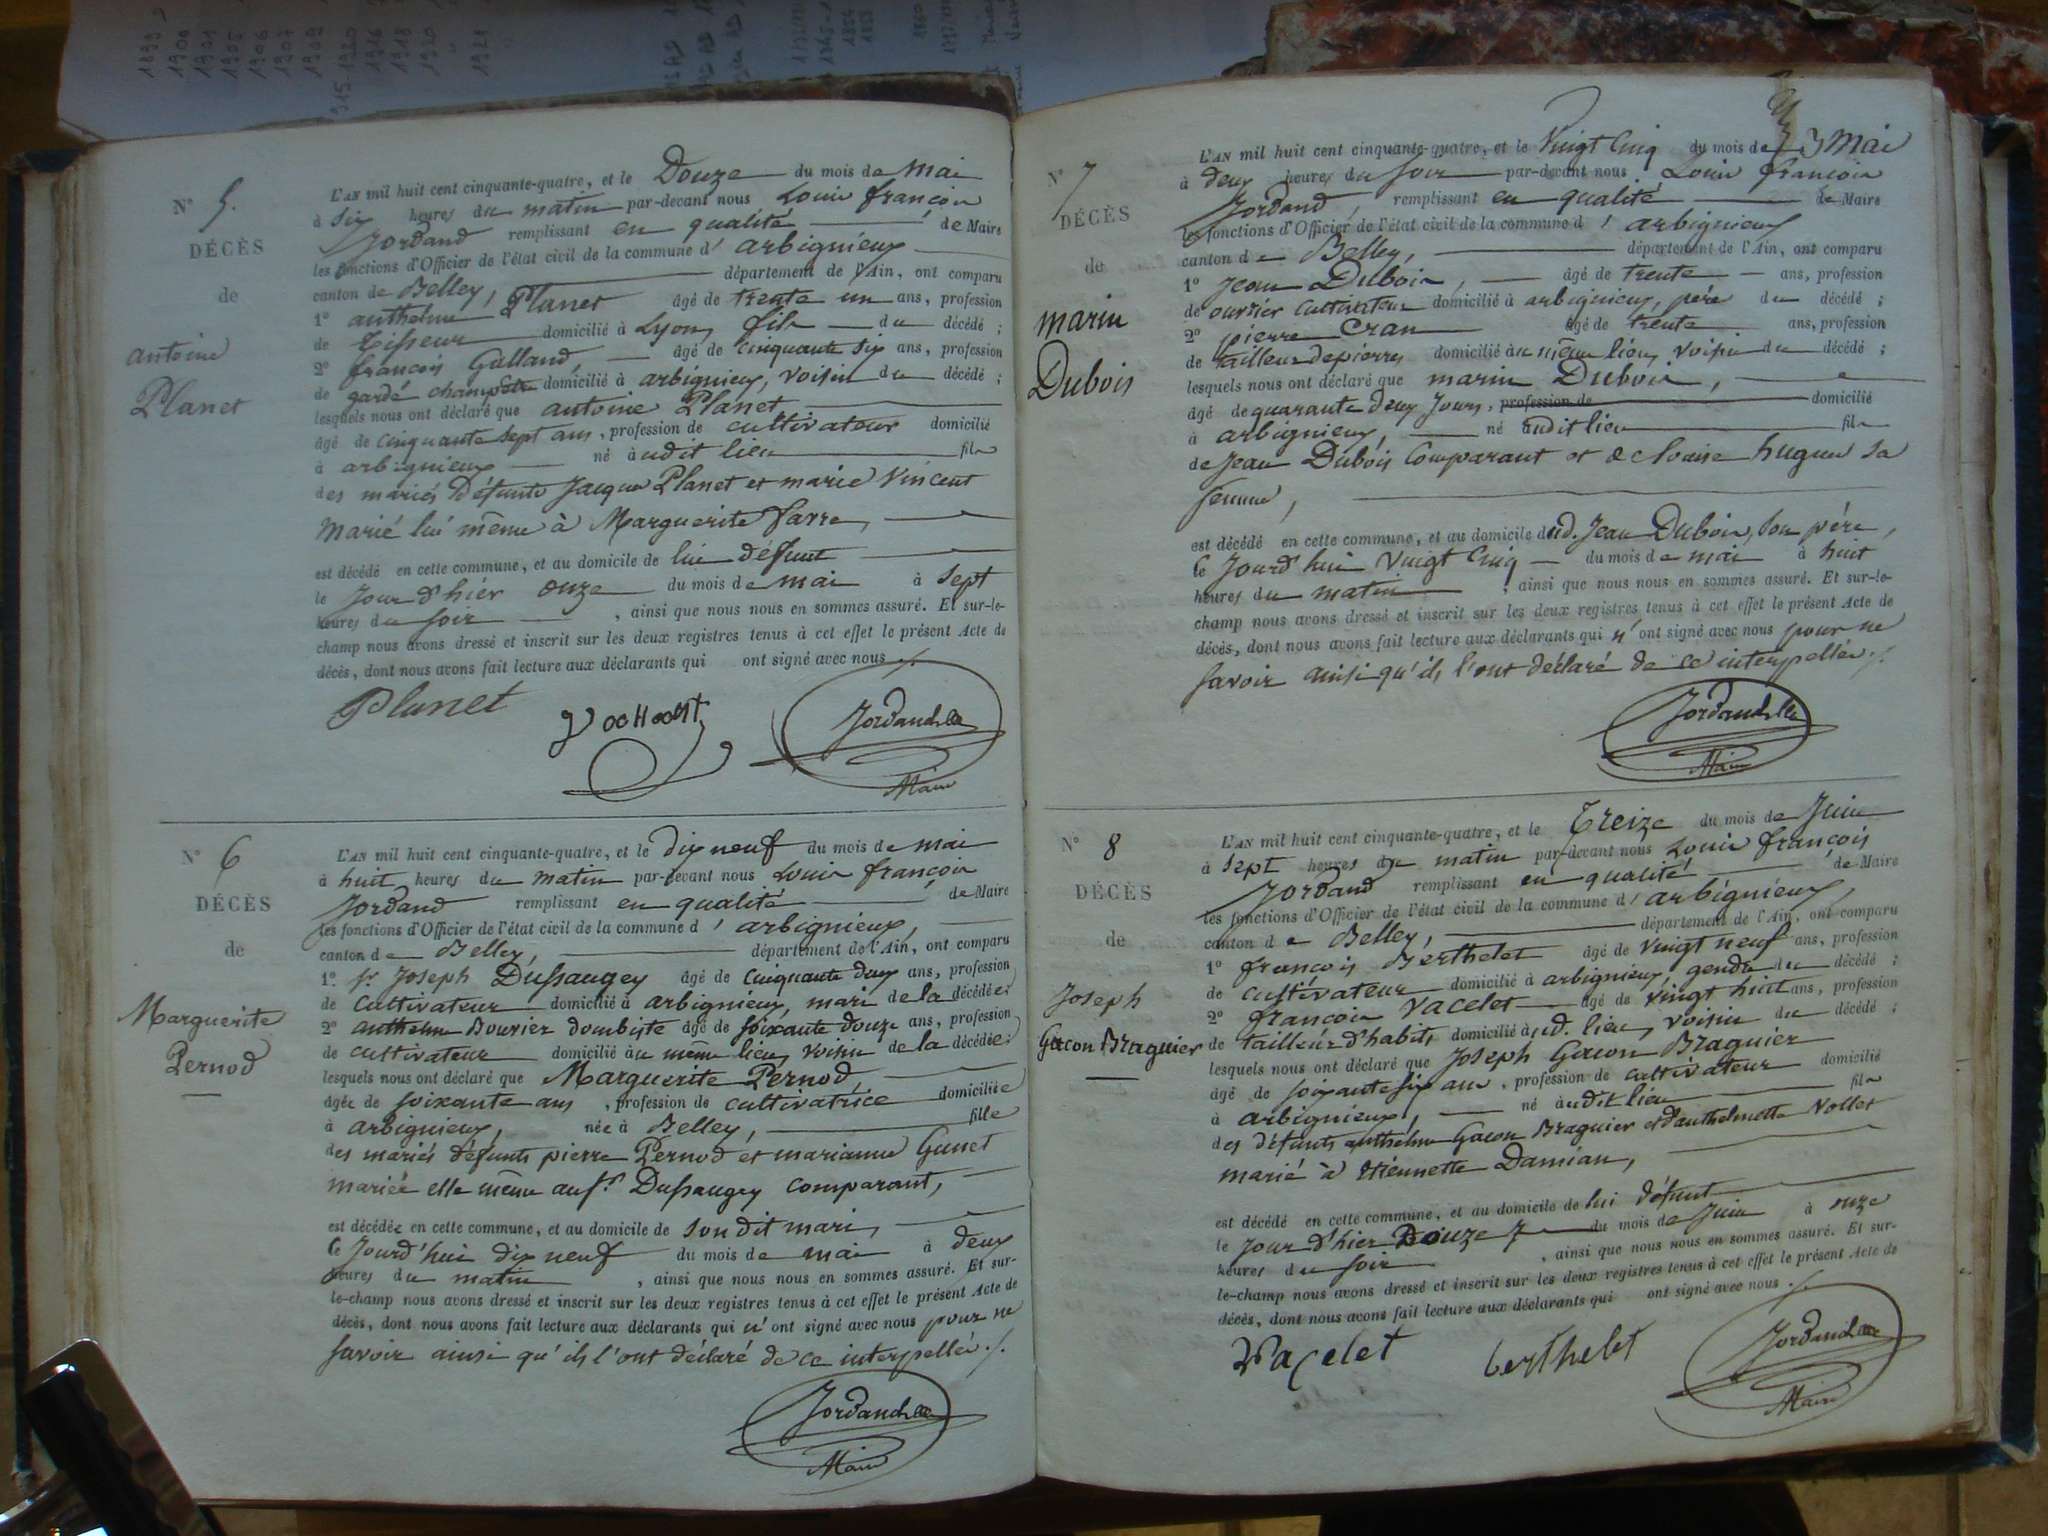 1899
1900
1901
1905
1906
1907
1909
1915-1920
1916
1918
1920
1921
N° 5.
DÉCÈS
de
antoine
Planet
L'AN mil huit cent cinquante-quatre, et le Douze du mois de mai
à six heures du matin par-devant nous Louis françois
Jordand remplissant en qualité de Maire
les fonctions d'Officier de l'état civil de la commune d' arbignieux
canton de Belley, département de l'Ain, ont comparu
1° anthelme Planet âgé de trente un ans, profession
de Tisseur domicilié à Lyon, fils du décédé ;
2° françois Galland, âgé de cinquante six ans, profession
de garde champêtre domicilié à arbignieux, voisin du décédé ;
lesquels nous ont déclaré que antoine Planet
âgé de cinquante sept ans, profession de cultivateur domicilié
à arbignieux né àudit lieu fils
des mariés défunts Jacques Planet et marie Vincent
marié lui même à Marguerite favre,
est décédé en cette commune, et au domicile de lui défunt
le jour d'hier onze du mois de mai à sept
heures du soir, ainsi que nous nous en sommes assuré. Et sur-le-
champ nous avons dressé et inscrit sur les deux registres tenus à cet effet le présent Acte de
décès, dont nous avons fait lecture aux déclarants qui ont signé avec nous ./.
Planet
Jordand
Maire
N° 6
DÉCÈS
de
Marguerite
Pernod
L'AN mil huit cent cinquante-quatre, et le dix neuf du mois de mai
à huit heures du matin par-devant nous Louis françois
Jordand remplissant en qualité de Maire
les fonctions d'Officier de l'état civil de la commune d' arbignieux,
canton de Belley, département de l'Ain, ont comparu
1° Sr Joseph Dussaugey âgé de cinquante deux ans, profession
de cultivateur domicilié à arbignieux, mari de la décédée;
2° anthelme Bouvier dombiste âgé de soixante douze ans, profession
de cultivateur domicilié àu même lieu, voisin de la décédée;
lesquels nous ont déclaré que Marguerite Pernod,
âgée de soixante ans, profession de cultivatrice domiciliée
à arbignieux, née à Belley, fille
des mariés défunts pierre Pernod et marianne Gunet
mariée elle même au Sr Dussaugey comparant,
est décédée en cette commune, et au domicile de son dit mari,
le Jourd'hui dix neuf du mois de mai à deux
heures du matin, ainsi que nous nous en sommes assuré. Et sur-
le-champ nous avons dressé et inscrit sur les deux registres tenus à cet effet le présent Acte de
décès, dont nous avons fait lecture aux déclarants qui n'ont signé avec nous pour ne
savoir ainsi qu'ils l'ont déclaré de ce interpellés ./.
Jordand
Maire
N° 7
DÉCÈS
de
marin
Dubois
L'AN mil huit cent cinquante-quatre, et le Vingt Cinq du mois de mai
à deux heures du soir par-devant nous Louis françois
Jordand, remplissant en qualité de Maire
les fonctions d'Officier de l'état civil de la commune d' arbignieux
canton de Belley, département de l'Ain, ont comparu
1° Jean Dubois, âgé de trente ans, profession
de ouvrier cultivateur domicilié à arbignieux, père du décédé ;
2° pierre Cran âgé de trente ans, profession
de tailleur de pierres domicilié àu même lieu, voisin du décédé ;
lesquels nous ont déclaré que marin Dubois,
âgé de quarante deux Jours, profession de domicilié
à arbignieux, né àudit lieu fils
de Jean Dubois Comparant et de Louise hugues sa
femme,
est décédé en cette commune, et au domicile dud. Jean Dubois, son père,
le Jourd'hui Vingt Cinq du mois de mai à huit
heures du matin, ainsi que nous nous en sommes assuré. Et sur-le-
champ nous avons dressé et inscrit sur les deux registres tenus à cet effet le présent Acte de
décès, dont nous avons fait lecture aux déclarants qui n'ont signé avec nous pour ne
savoir ainsi qu'ils l'ont déclaré de ce interpellés ./.
Jordand
Maire
N° 8
DÉCÈS
de
Joseph
Gacon Braguier
L'AN mil huit cent cinquante-quatre, et le Treize du mois de Juin
à sept heures du matin par-devant nous Louis françois
Jordand remplissant en qualité de Maire
les fonctions d'Officier de l'état civil de la commune d' arbignieux,
canton de Belley, département de l'Ain, ont comparu
1° françois Berthelet âgé de vingt neuf ans, profession
de cultivateur domicilié à arbignieux, gendre du décédé ;
2° françois Vacelet âgé de vingt huit ans, profession
de tailleur d'habits domicilié àud. lieu, voisin du décédé ;
lesquels nous ont déclaré que Joseph Gacon Braguier
âgé de soixante six ans, profession de cultivateur domicilié
à arbignieux, né àudit lieu fils
des défunts anthelme Gacon Braguier et d'anthelmette Vollet
marié à Etiennette Damian,
est décédé en cette commune, et au domicile de lui défunt
le Jour d'hier Douze du mois de Juin à onze
heures du soir, ainsi que nous nous en sommes assuré. Et sur-
le-champ nous avons dressé et inscrit sur les deux registres tenus à cet effet le présent Acte de
décès, dont nous avons fait lecture aux déclarants qui ont signé avec nous ./.
Vacelet berthelet Jordand
Maire